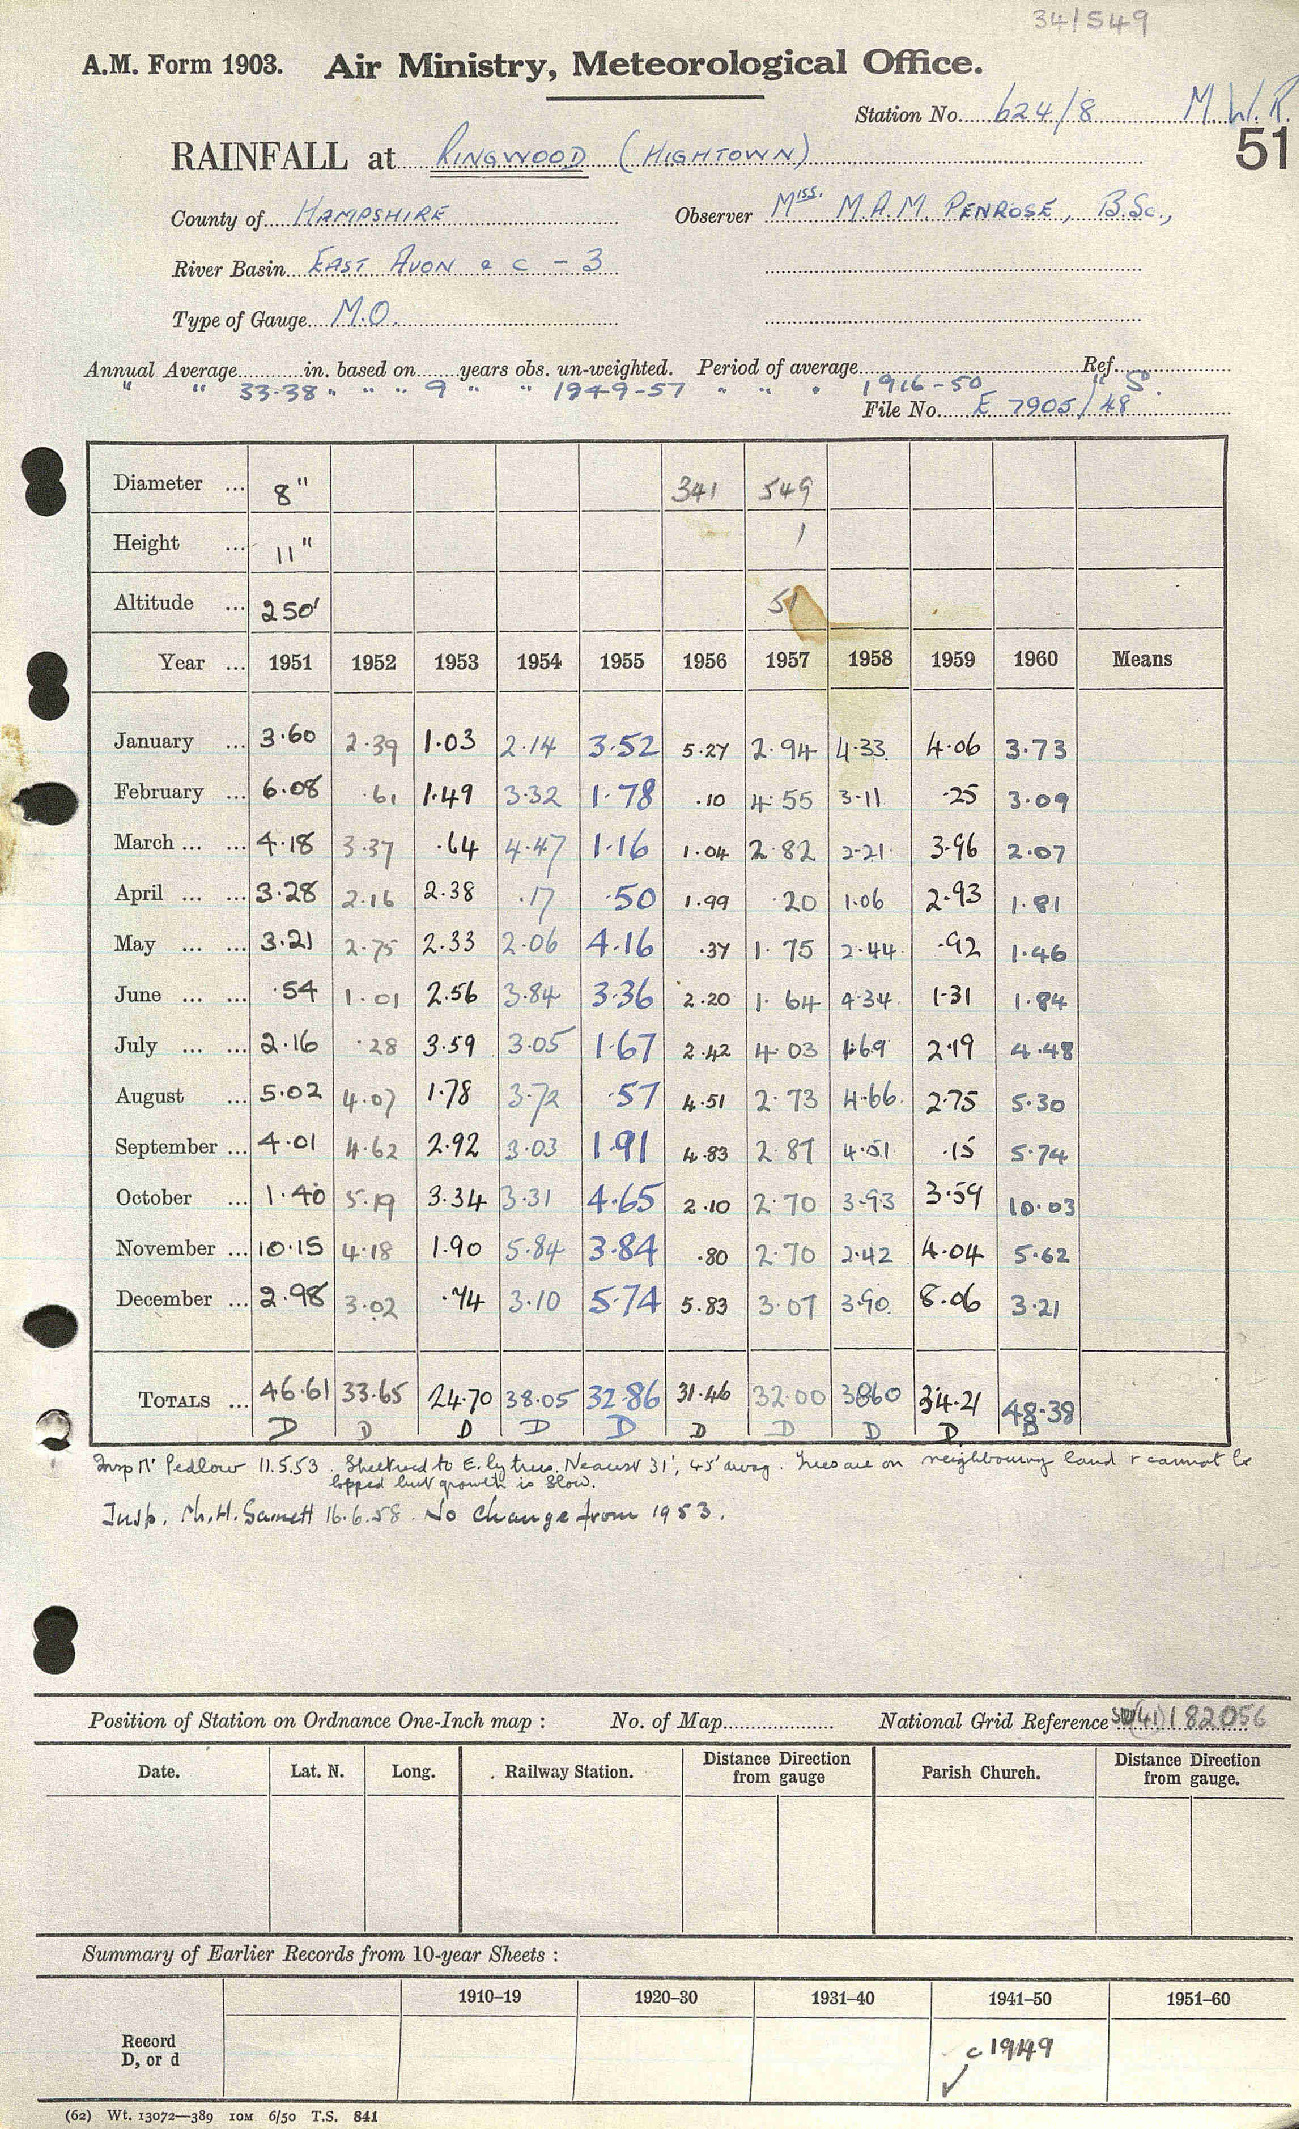 341549
A.M. Form 1903. Air Ministry, Meteorological Office.
Station No. 624/8 M.W.R.
51
RAINFALL at RINGWOOD (HIGHTOWN)
County of HAMPSHIRE Observer Miss. M.A.M. PENROSE, B.Sc.,
River Basin EAST AVON & C - 3
Type of Gauge M.O.
Annual Average in. based on years obs. un-weighted. Period of average Ref.
" " 33.38 " " " 9 " " 1949-57 " " " 1916-50 " S.
File No. E 7905/48
Diameter ... 8" 341 549
Height ... 11" 1
Altitude ... 250' 51
Year ... 1951 1952 1953 1954 1955 1956 1957 1958 1959 1960 Means
January ... 3.60 2.39 1.03 2.14 3.52 5.27 2.94 4.33 4.06 3.73
February ... 6.08 .61 1.49 3.32 1.78 .10 4.55 3.11 .25 3.09
March ... ... 4.18 3.37 .64 4.47 1.16 1.04 2.82 2.21 3.96 2.07
April ... ... 3.28 2.16 2.38 .17 .50 1.99 .20 1.06 2.93 1.81
May ... ... 3.21 2.75 2.33 2.06 4.16 .37 1.75 2.44 .92 1.46
June ... ... .54 1.01 2.56 3.84 3.36 2.20 1.64 4.34 1.31 1.84
July ... ... 2.16 .28 3.59 3.05 1.67 2.42 4.03 1.69 2.19 4.48
August ... 5.02 4.07 1.78 3.72 .57 4.51 2.73 4.66 2.75 5.30
September ... 4.01 4.62 2.92 3.03 1.91 4.83 2.87 4.51 .15 5.74
October ... 1.40 5.19 3.34 3.31 4.65 2.10 2.70 3.93 3.59 10.03
November ... 10.15 4.18 1.90 5.84 3.84 .80 2.70 2.42 4.04 5.62
December ... 2.98 3.02 .74 3.10 5.74 5.83 3.07 3.90 8.06 3.21
TOTALS ... 46.61 33.65 24.70 38.05 32.86 31.46 32.00 38.60 34.21 48.38
D D D D D D D D D D
Insp Mr Pedlow 11.5.53. Sheltered to E. by trees. Nearest 31', 45' away. Trees are on neighbouring land & cannot be
lopped but growth is slow.
Insp. M.H. Garnett 16.6.58. No change from 1953.
Position of Station on Ordnance One-Inch map : No. of Map National Grid Reference (41) 182056
Date. Lat. N. Long. Railway Station. Distance Direction from gauge Parish Church. Distance Direction from gauge.
Summary of Earlier Records from 10-year Sheets :
1910-19 1920-30 1931-40 1941-50 1951-60
Record
D, or d
c 1949
✓
(62) Wt. 13072—389 10M 6/50 T.S. 841